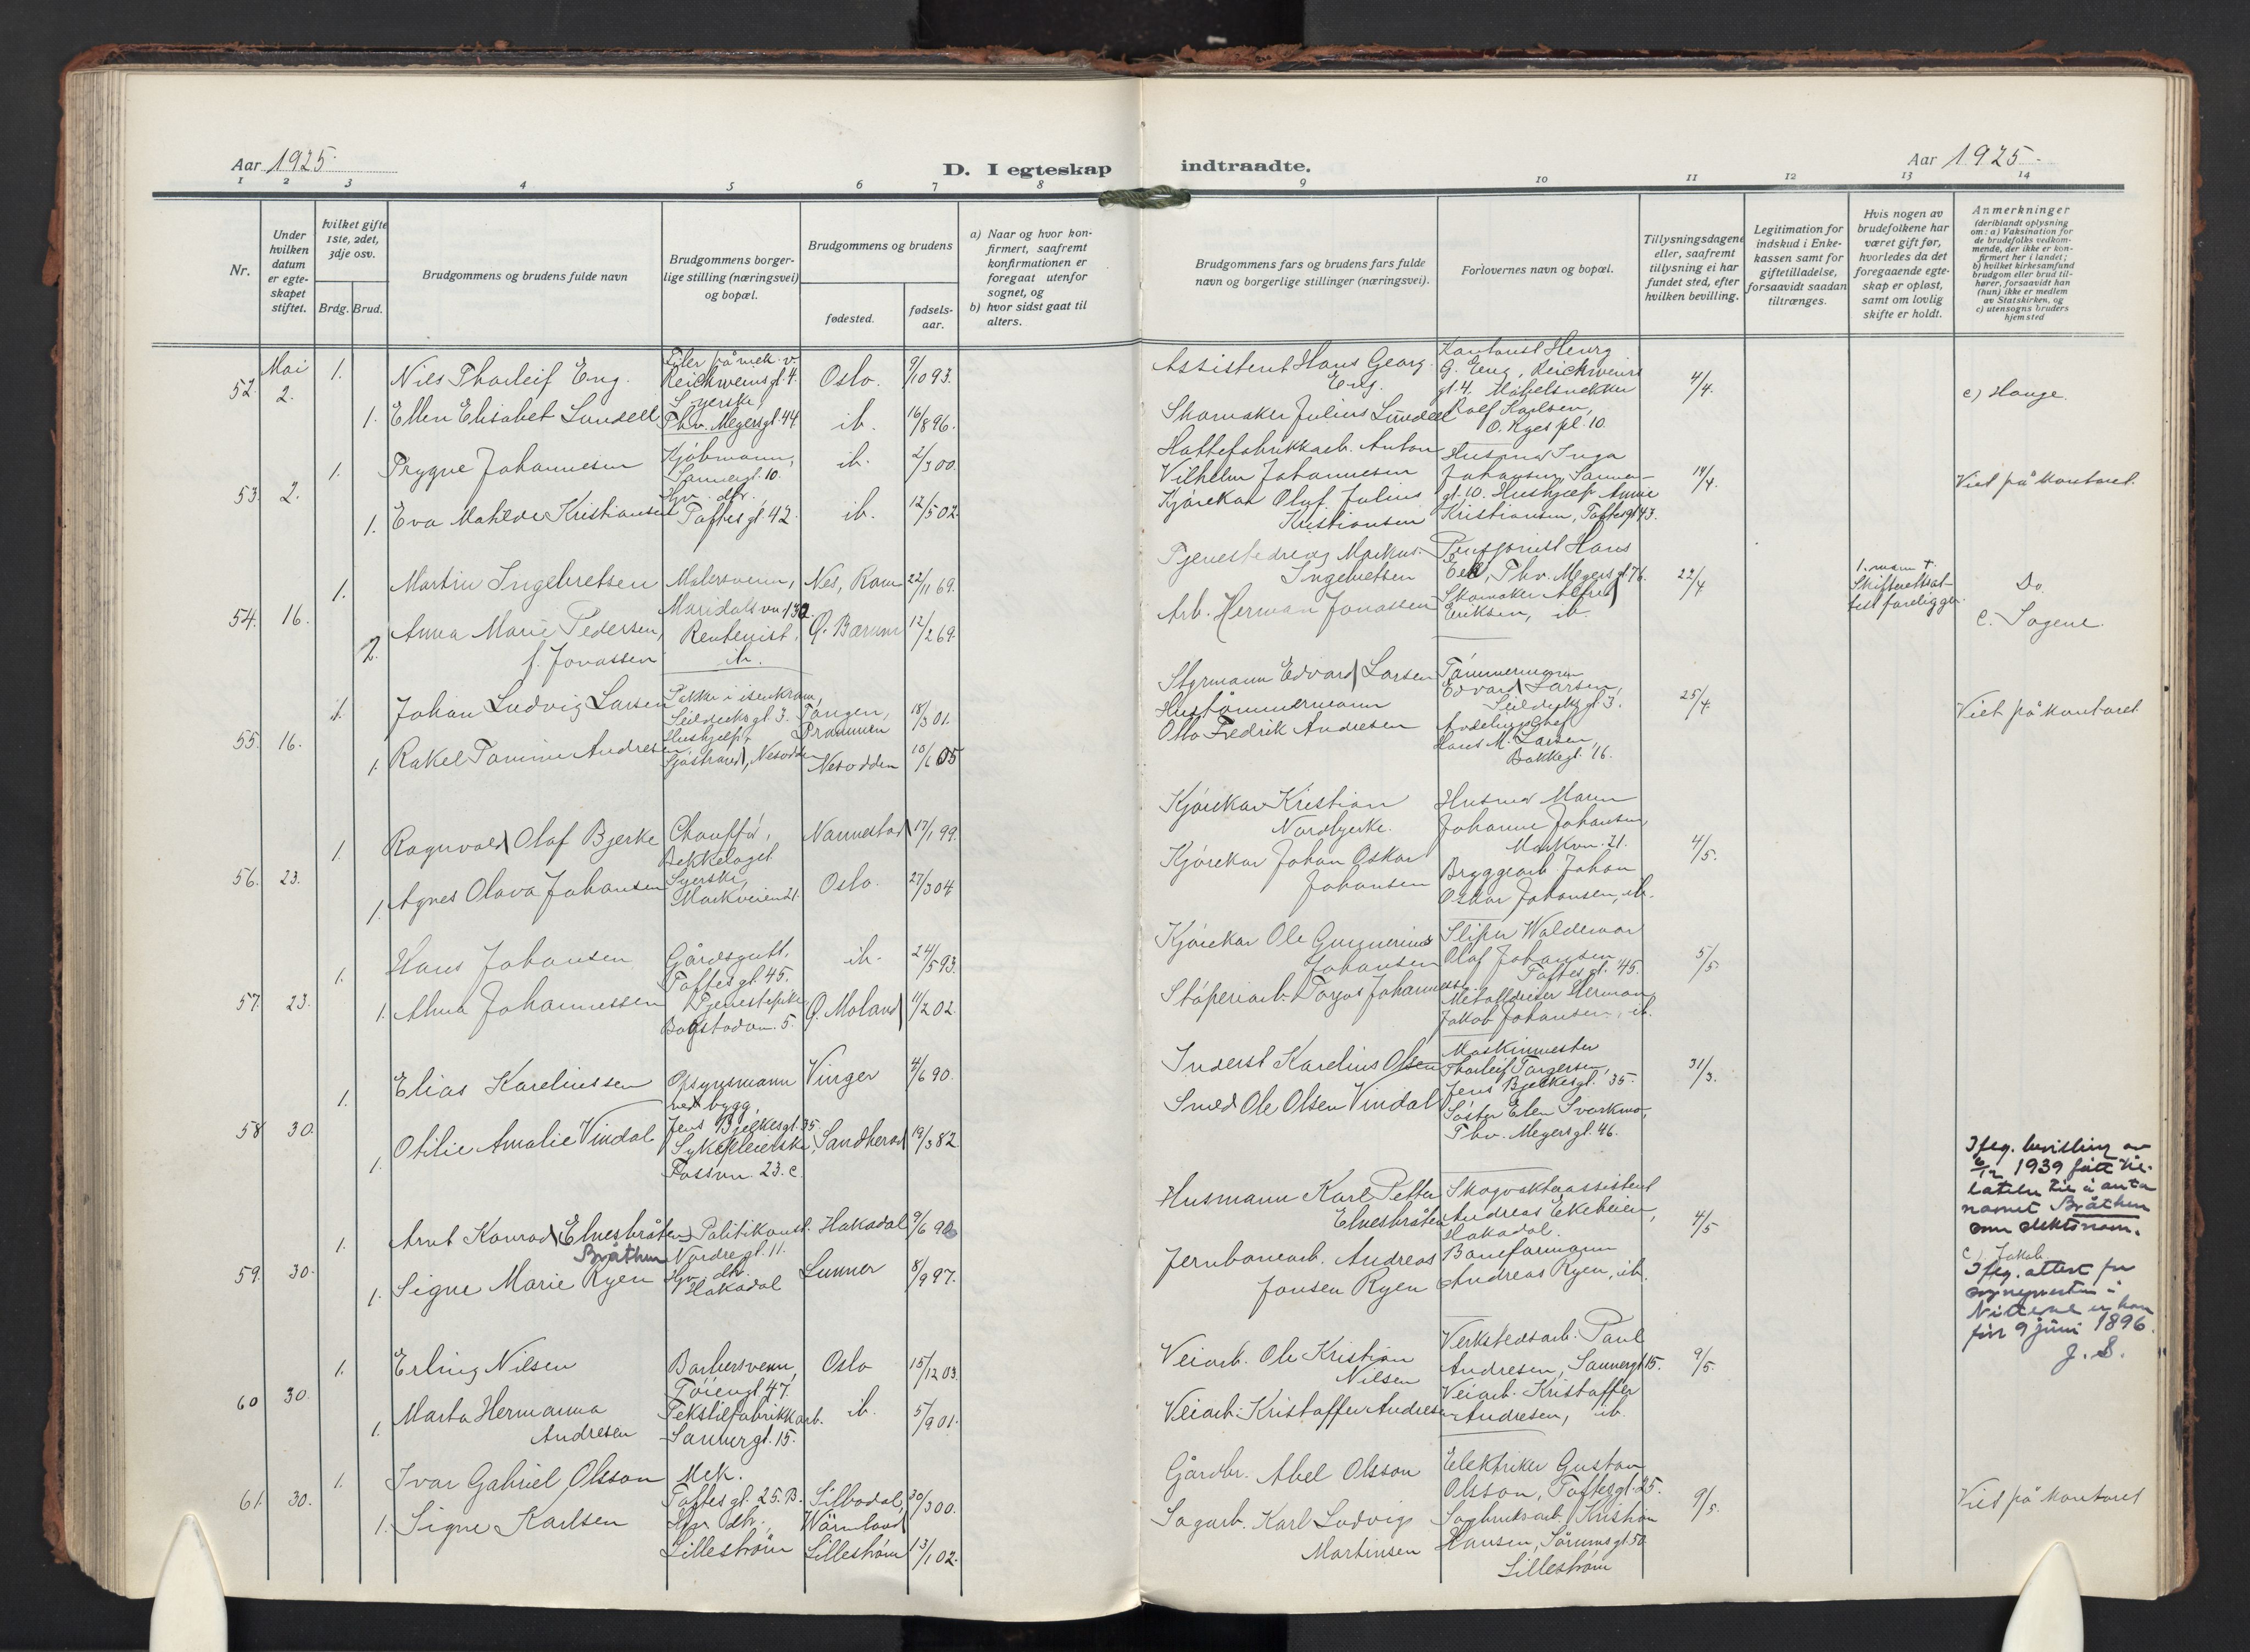 Aar 1925.
D. I egteskap
indtraadte.
Aar 1925.
1 2 3 4 5 6 7 8 9 10 11 12 13 14
Nr.
Under
hvilken
datum
er egte-
skapet
stiftet.
hvilket gifte
1ste, 2det,
3dje osv.
Brdg. Brud.
Brudgommens og brudens fulde navn
Brudgommens borger-
lige stilling (næringsvei)
og bopæl.
Brudgommens og brudens
fødested.
fødsels-
aar.
a) Naar og hvor kon-
firmert, saafremt
konfirmationen er
foregaat utenfor
sognet, og
b) hvor sidst gaat til
alters.
Brudgommens fars og brudens fars fulde
navn og borgerlige stillinger (næringsvei).
Forlovernes navn og bopæl.
Tillysningsdagene
eller, saafremt
tillysning ei har
fundet sted, efter
hvilken bevilling.
Legitimation for
indskud i Enke-
kassen samt for
giftetilladelse,
forsaavidt saadan
tiltrænges.
Hvis nogen av
brudefolkene har
været gift før,
hvorledes da det
foregaaende egte-
skap er opløst,
samt om lovlig
skifte er holdt.
Anmerkninger
(deriblandt oplysning
om: a) Vaksination for
de brudefolks vedkom-
mende, der ikke er kon-
firmert her i landet;
b) hvilket kirkesamfund
brudgom eller brud til-
hører, forsaavidt han
(hun) ikke er medlem
av Statskirken, og
c) utensogns bruders
hjemsted
52. Mai 2.
1. Nils Thorleif Eng.
Filer på mek. v.
Reichweinsgt. 4.
Oslo. 9/10 93.
1. Ellen Elisabet Lundell
Syerske,
Thv. Meyersgt. 44
ib. 16/8 96.
Assistent Hans Georg
Eng.
Skomaker Julius Lundell
Kontorist Henry
G. Eng, Reichweins
gt. 4. Møbelsnekker
Rolf Karlsen,
O. Ryes pl. 10.
4/4.
c) Hauge.
53. 2.
1. Trygve Johannesen
Kjøbmann,
Sannergt. 10.
ib. 2/3 00.
1. Eva Mathilde Kristiansen
Hjv. dtr.
Toftesgt. 42.
ib. 12/5 02.
Hattefabrikkarb. Anton
Vilhelm Johannesen
Kjørekar Oluf Julius
Kristiansen
Husmor Inga
Johansen, Sanner-
gt. 10. Hushjelp Annie
Kristiansen, Toftesgt 43.
14/4.
Viet på kontoret.
54. 16.
1. Martin Ingebretsen
Malersvenn,
Maridalsvn. 130
Nes, Rom. 22/11 69.
2. Anna Marie Pedersen,
f. Jonassen
Rentenist,
ib.
Ø. Bærum 12/2 69.
Tjenestedreng Markus
Ingebretsen
Arb. Herman Jonassen
Pensjonist Hans
Thv. Meyersgt 76.
Skomaker Alfred
Eriksen, ib.
22/4
1. mann †.
Skifterettsat-
test foreligger.
Do.
c. Sagene.
55. 16.
1. Johan Ludvig Larsen
Pakker i isenkram,
Seilduksgt. 3.
Tangen,
Drammen
18/3 01.
1. Rakel Tomine Andresen
Hushjelp,
Sjøstrand, Nesodden
Nesodden 10/6 05
Styrmann Edvard Larsen
Hustømmermann
Otto Fredrik Andresen
Tømmermann
Edvard Larsen,
Seilduksgt 3.
Avdelingschef
Hans M. Larsen,
Bakkegt. 16.
25/4
Viet på kontoret
56. 23.
1. Ragnvald Olaf Bjerke
Chauffør,
Bekkelaget
Nannestad 17/1 99.
1. Agnes Olava Johansen
Syerske,
Markveien 21.
Oslo. 27/3 04
Kjørekar Kristian
Nordbjerke.
Kjørekar Johan Oskar
Johansen
Husmor Maren
Johanne Johansen,
Markvn. 21.
Bryggearb. Johan
Oskar Johansen, ib.
4/5.
57. 23.
1. Hans Johansen
Gårdsgutt,
Toftesgt. 45.
ib. 24/5 93.
1. Alma Johannessen
Tjenestepike
Bogstadvn. 5.
Ø. Moland 11/2 02.
Kjørekar Ole
Johansen
Støperiarb. Torjus Johannessen
Sliper Waldemar
Olaf Johansen,
Toftesgt. 45.
Metalldreier Herman
Jakob Johansen, ib.
5/5
58. 30.
1. Elias Kareliussen
Opsynsmann
ved bygg,
Jens Bjelkesgt. 35.
Vinger 4/6 90.
1. Otilie Amalie Vindal
Sykepleierske,
Fossvn. 23. c.
Sandherad 19/3 82
Inderst Karelius Olsen
Smed Ole Olsen Vindal
Maskinmester
Thorleif Torgersen,
Jens Bjelkesgt. 35.
Søster Elen Svarkmo,
Thv. Meyersgt. 46.
31/3.
59. 30.
1. Arnt Konrad Elnesbråten
Bråthen
Politikonst.
Nordregt. 11.
Hakadal 9/6 96
1. Signe Marie Ryen
Hjv. dtr.
Hakadal
Lunner 8/9 97.
Husmann Karl Petter
Elnesbråten
Jernbanearb. Andreas
Jonsen Ryen
Skogvokterassistent
Andreas Ekeheien,
Hakadal.
Baneformann
Andreas Ryen, ib.
4/5
Iflg. bevilling av
6/12 1939 fått til-
latelse til å anta
navnet Bråthen
som slektsnavn.
c) Jakob.
Iflg. attest fra
sogneprestens i
Nittedal er han
født 9 juni 1896.
J. S.
60 30.
1. Erling Nilsen
Barbersvenn,
Tøiengt. 47.
Oslo 15/12 03.
1. Marta Hermanna
Andresen
Tekstilfabrikkarb.
Sannergt. 15.
ib. 5/9 01.
Veiarb. Ole Kristian
Nilsen
Veiarb. Kristoffer Andresen
Verkstedsarb. Paul
Andresen, Sannergt 15.
Veiarb. Kristoffer
Andresen, ib.
9/5.
61. 30.
1. Ivar Gabriel Olsson
Mek.
Toftesgt. 25. B.
Silbodal,
Wärmland
30/3 00.
1. Signe Karlsen
Hjv. dtr.,
Lillestrøm
Lillestrøm 13/1 02.
Gårdbr. Abel Olsson
Sagarb. Karl Ludvig
Martinsen
Elektriker Gustav
Olsson, Toftesgt. 25.
Sagbruksarb. Kristian
Hansen, Sørumsgt. 50
Lillestrøm
9/5.
Viet på kontoret